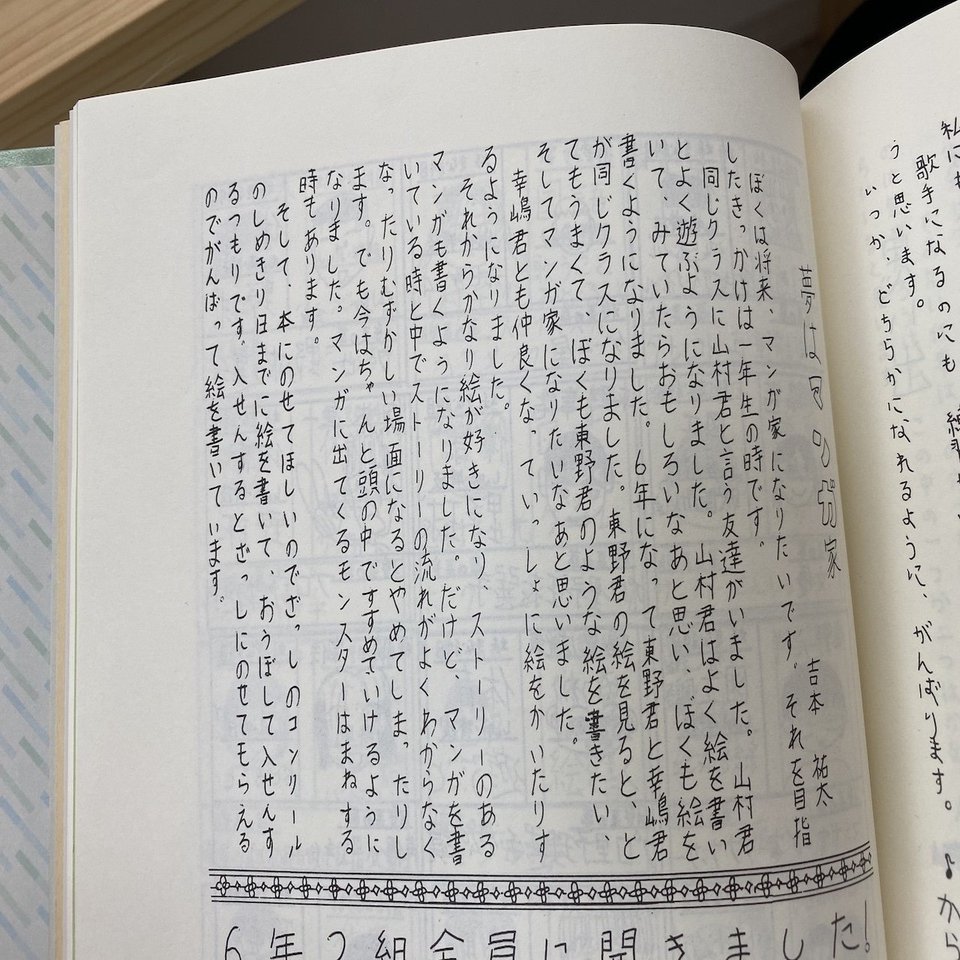 私にも
歌手になるのにも
うと思います。
いつか、どちらかになれるように、がんばります。
♪から
夢はマンガ家
吉本 祐太
ぼくは将来、マンガ家になりたいです。それを目指
したきっかけは一年生の時です。
同じクラスに山村君と言う友達がいました。山村君
とよく遊ぶようになりました。山村君はよく絵を書い
いて、みていたらおもしろいなあと思い、ぼくも絵を
書くようになりました。6年になって東野君と幸嶋君
が同じクラスになりました。東野君の絵を見ると、と
てもうまくて、ぼくも東野君のような絵を書きたい、
そしてマンガ家になりたいなあと思いました。
幸嶋君とも仲良くなっていっしょに絵をかいたりす
るようになりました。
それからかなり絵が好きになり、ストーリーのある
マンガも書くようになりました。だけど、マンガを書
いている時と中でストーリーの流れがよくわからなく
なったりむずかしい場面になるとやめてしまったりし
ます。でも今はちゃんと頭の中ですすめていけるように
なりました。マンガに出てくるモンスターはまねする
時もあります。
そして、本にのせてほしいのでざっしのコンクール
のしめきり日までに絵を書いて、おうぼして入せんす
るつもりです。入せんするとざっしにのせてもらえる
のでがんばって絵を書いています。
6年2組全員に聞きました!